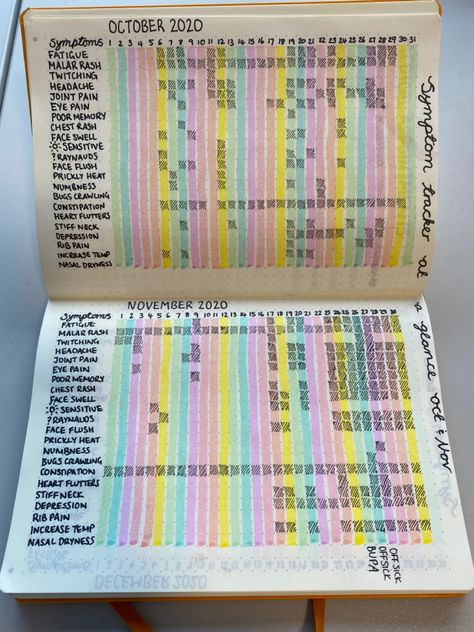 OCTOBER 2020
Symptoms 1 2 3 4 5 6 7 8 9 10 11 12 13 14 15 16 17 18 19 20 21 22 23 24 25 26 27 28 29 30 31
FATIGUE
MALAR RASH
TWITCHING
HEADACHE
JOINT PAIN
EYE PAIN
POOR MEMORY
CHEST RASH
FACE SWELL
SENSITIVE
? RAYNAUDS
FACE FLUSH
PRICKLY HEAT
NUMBNESS
BUGS CRAWLING
CONSTIPATION
HEART FLUTTERS
STIFF NECK
DEPRESSION
RIB PAIN
INCREASE TEMP
NASAL DRYNESS
Symptom tracker at
a glance oct & Nov
NOVEMBER 2020
Symptoms 1 2 3 4 5 6 7 8 9 10 11 12 13 14 15 16 17 18 19 20 21 22 23 24 25 26 27 28 29 30
FATIGUE
MALAR RASH
TWITCHING
HEADACHE
JOINT PAIN
EYE PAIN
POOR MEMORY
CHEST RASH
FACE SWELL
SENSITIVE
? RAYNAUDS
FACE FLUSH
PRICKLY HEAT
NUMBNESS
BUGS CRAWLING
CONSTIPATION
HEART FLUTTERS
STIFF NECK
DEPRESSION
RIB PAIN
INCREASE TEMP
NASAL DRYNESS
BUPA
OFF SICK
OFF SICK
DECEMBER 2020